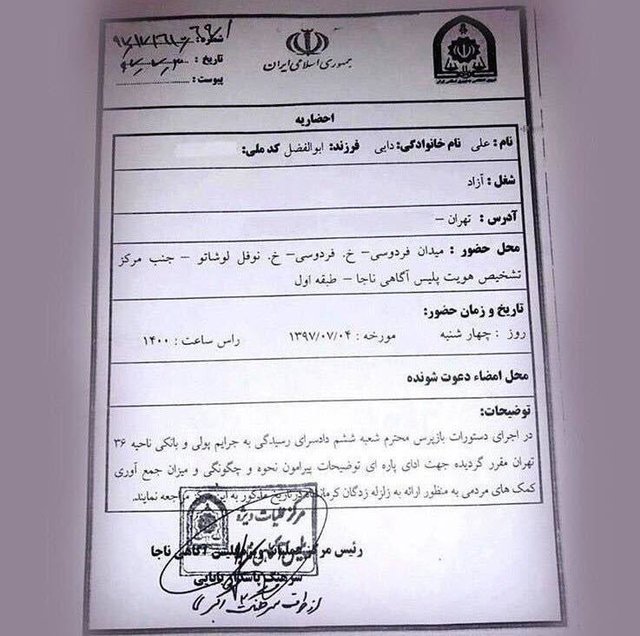 شماره :
تاریخ :
پیوست :
جمهوری اسلامی ایران
احضاریه
نام : علی نام خانوادگی: دایی فرزند: ابوالفضل کد ملی:
شغل : آزاد
آدرس : تهران –
محل حضور : میدان فردوسی– خ. فردوسی– خ. نوفل لوشاتو – جنب مرکز
تشخیص هویت پلیس آگاهی ناجا – طبقه اول
تاریخ و زمان حضور:
روز : چهار شنبه مورخه : ۱۳۹۷/۰۷/۰۴ راس ساعت : ۱۴۰۰
محل امضاء دعوت شونده
توضیحات:
در اجرای دستورات بازپرس محترم شعبه ششم دادسرای رسیدگی به جرایم پولی و بانکی ناحیه ۳۶
تهران مقرر گردیده جهت ادای پاره ای توضیحات پیرامون نحوه و چگونگی و میزان جمع آوری
کمک های مردمی به منظور ارائه به زلزله زدگان کرمانشاه در تاریخ مذکور به این مرکز مراجعه نمایند.
مرکز عملیات ویژه
پلیس آگاهی
رئیس مرکز عملیات ویژه پلیس آگاهی ناجا
سرهنگ پاسدار
از طرف سرهنگ